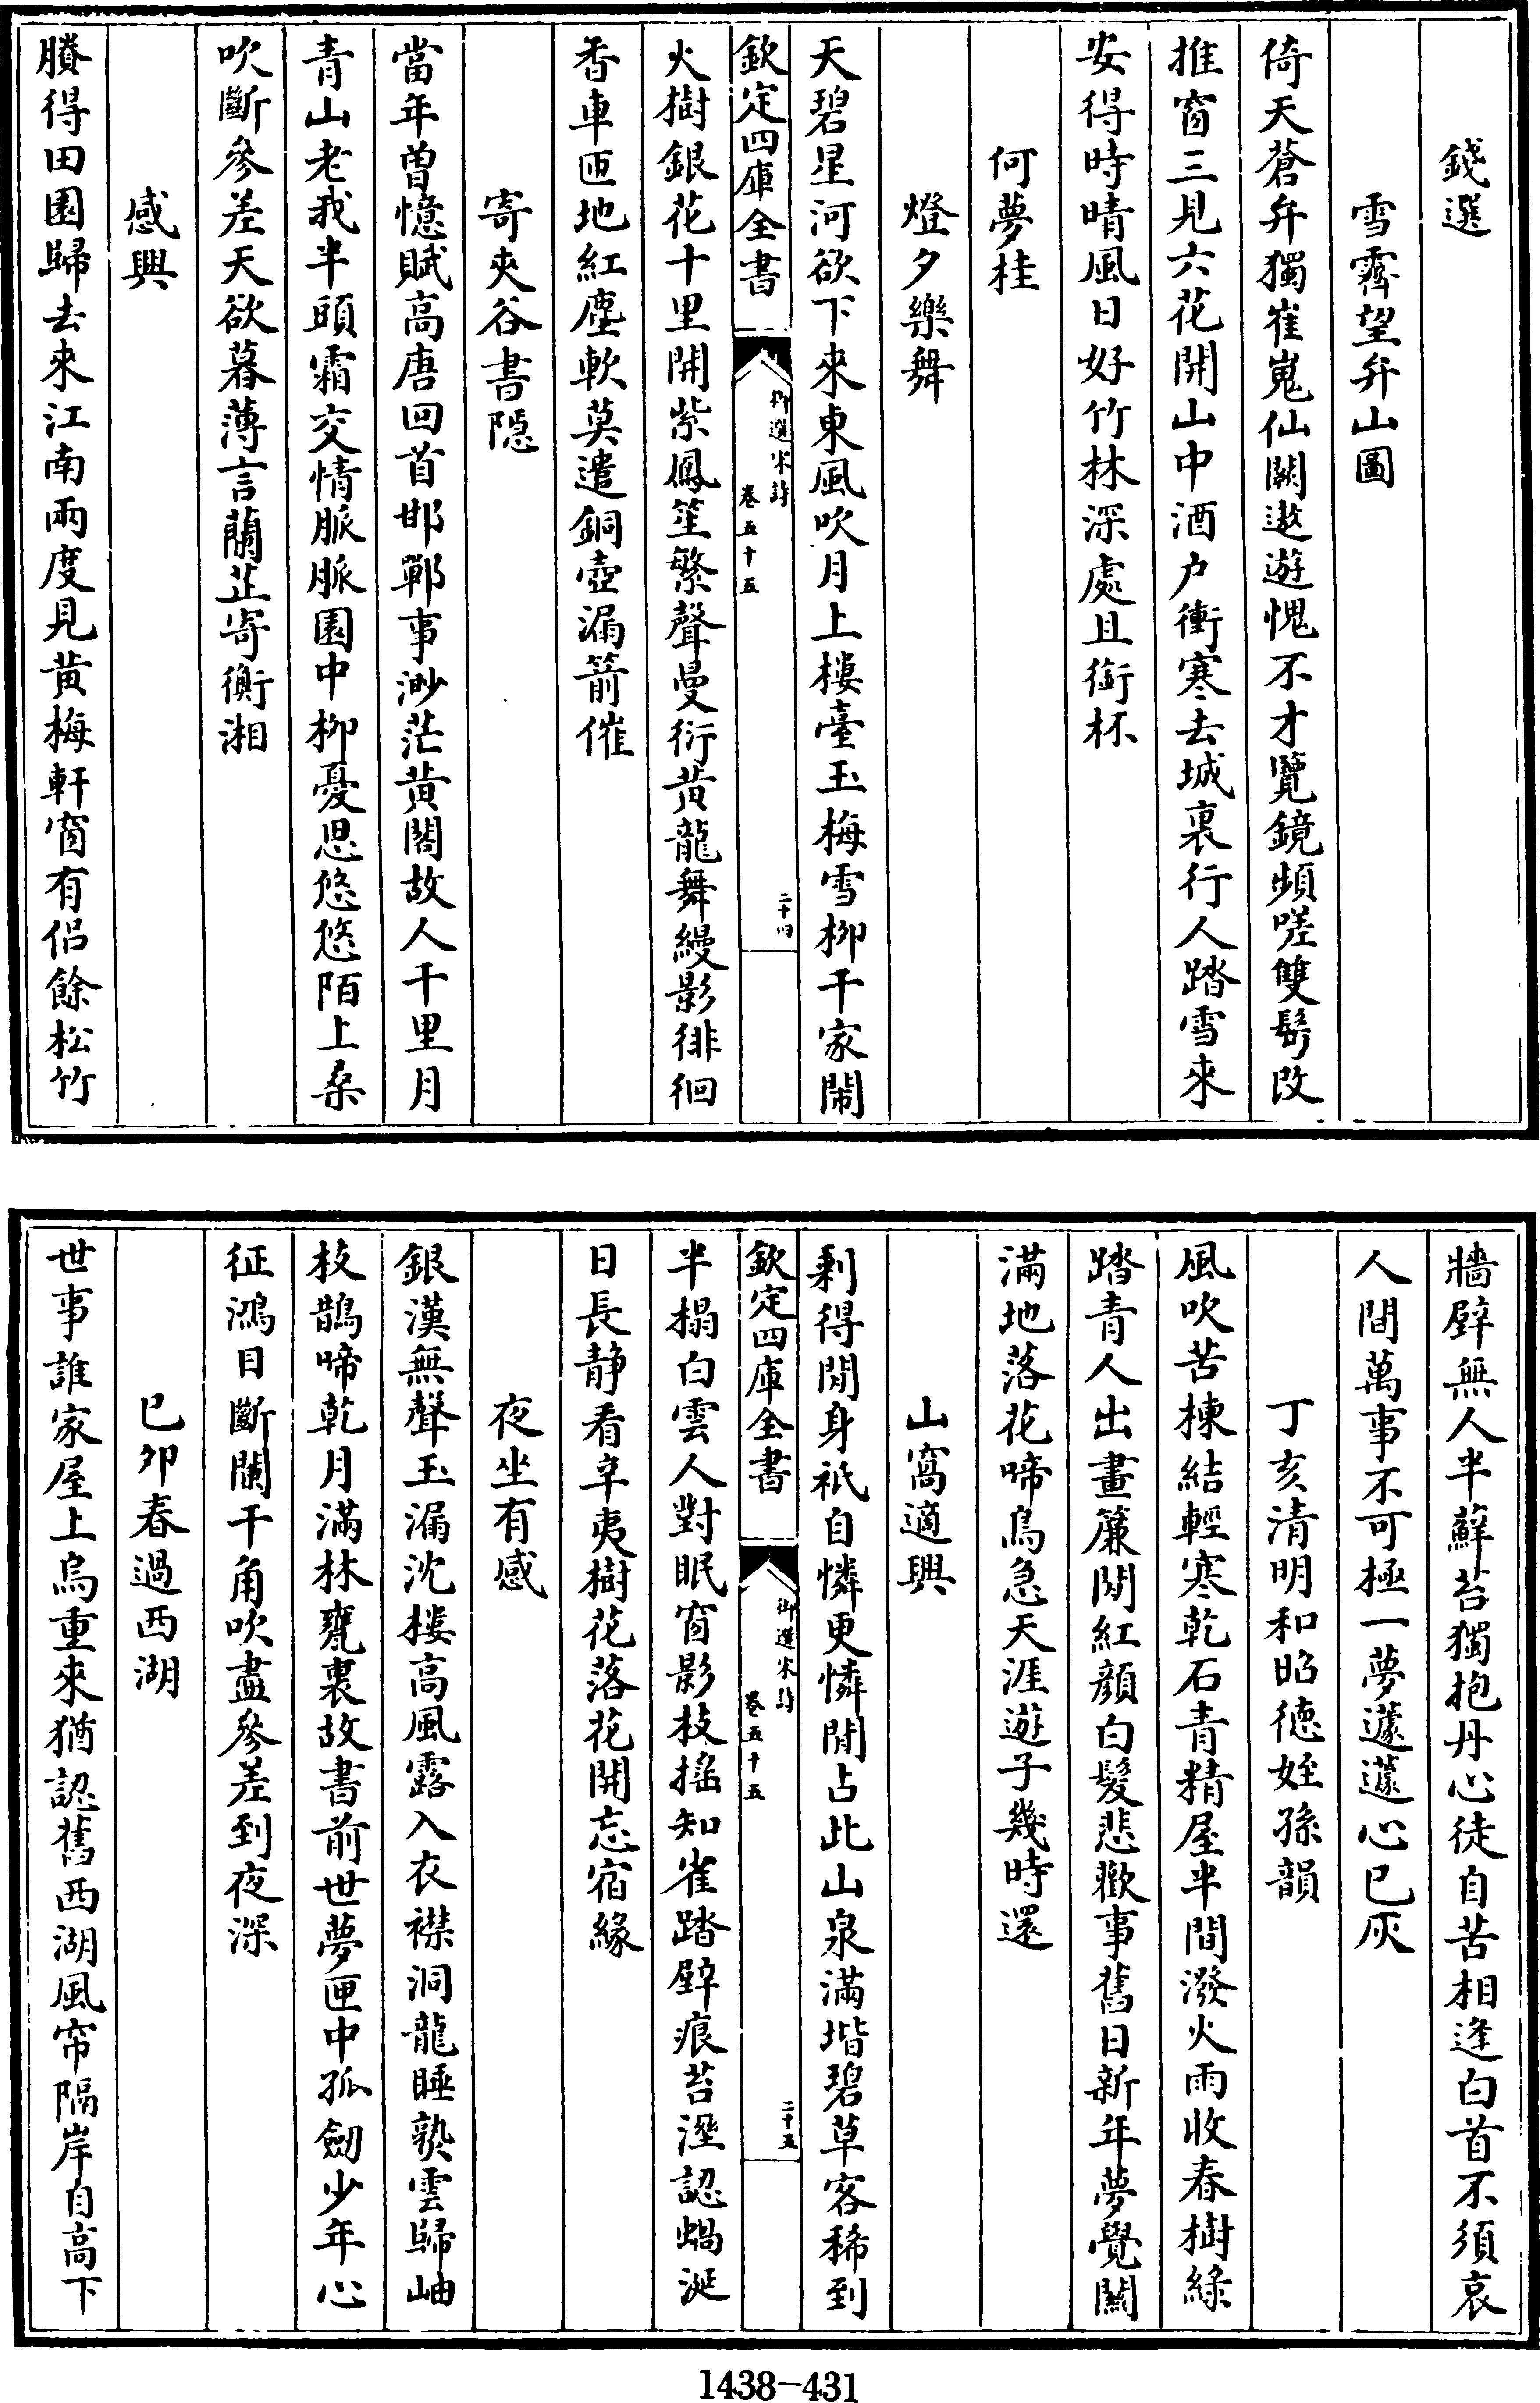 錢選
雪霽望弁山圖
倚天蒼弁獨崔嵬仙闕遨遊愧不才覽鏡頻嗟雙鬂改
推窗三見六花開山中酒户衝寒去城裏行人踏雪來
安得時晴風日好竹林深處且銜杯
何夢桂
燈夕樂舞
天碧星河欲下來東風吹月上樓臺玉梅雪柳千家閙
欽定四庫全書
御選宋詩
卷五十五
二十四
火樹銀花十里開紫鳳笙繁聲曼衍黄龍舞縵影徘徊
香車匝地紅塵軟莫遣銅壺漏箭催
寄夾谷書隠
當年曽憶賦高唐回首邯鄲事渺茫黄閣故人千里月
青山老我半頭霜交情脈脈園中柳憂思悠悠陌上桑
吹斷參差天欲暮薄言蘭芷寄衡湘
感興
賸得田園歸去來江南兩度見黄梅軒窗有侣餘松竹
牆壁無人半蘚苔獨抱丹心徒自苦相逢白首不須哀
人間萬事不可極一夢蘧蘧心已灰
丁亥清明和昭德姪孫韻
風吹苦楝結輕寒乾石青精屋半間潑火雨收春樹綠
踏青人出畫簾閒紅顔白髮悲歡事舊日新年夢覺關
滿地落花啼鳥急天涯遊子幾時還
山窩適興
剩得閒身祇自憐更憐閒占此山泉滿堦碧草客稀到
欽定四庫全書
御選宋詩
卷五十五
二十五
半榻白雲人對眠窗影枝揺知雀踏壁痕苔溼認蝸涎
日長静看辛夷樹花落花開忘宿緣
夜坐有感
銀漢無聲玉漏沈樓高風露入衣襟洞龍睡熟雲歸岫
枝鵲啼乾月滿林甕裏故書前世夢匣中孤劒少年心
征鴻目斷闌干角吹盡參差到夜深
已夘春過西湖
世事誰家屋上烏重來猶認舊西湖風帘隔岸自高下
1438-431